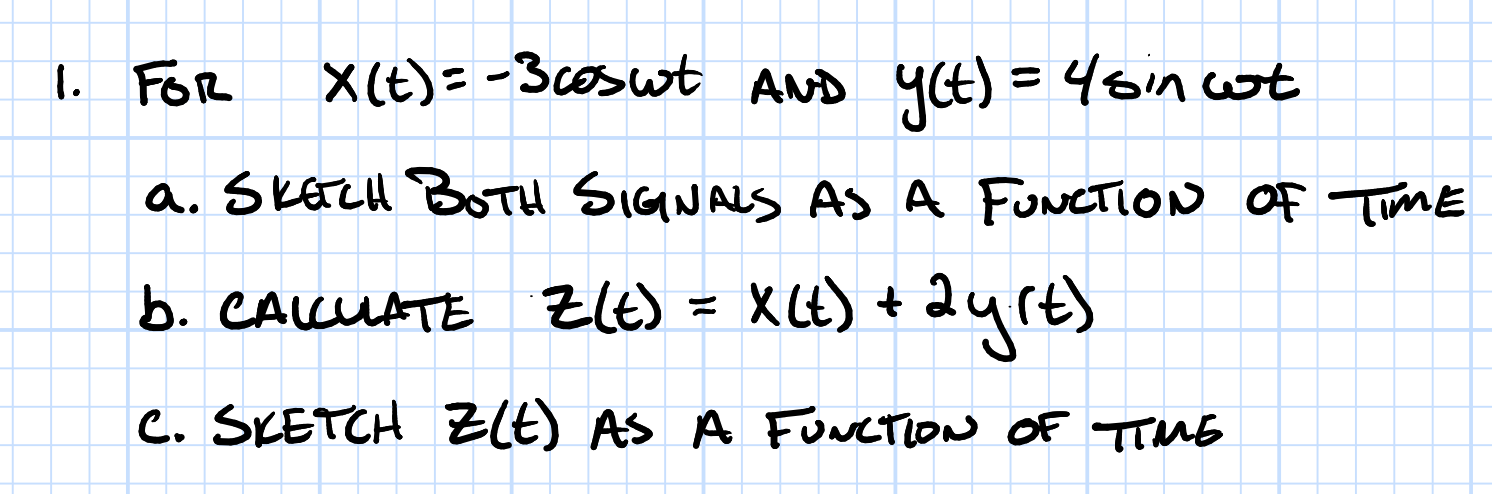 1. FOR X(t) = -3cosωt AND y(t) = 4sin ωt
a. SKETCH BOTH SIGNALS AS A FUNCTION OF TIME
b. CALCULATE Z(t) = X(t) + 2y(t)
c. SKETCH Z(t) AS A FUNCTION OF TIME